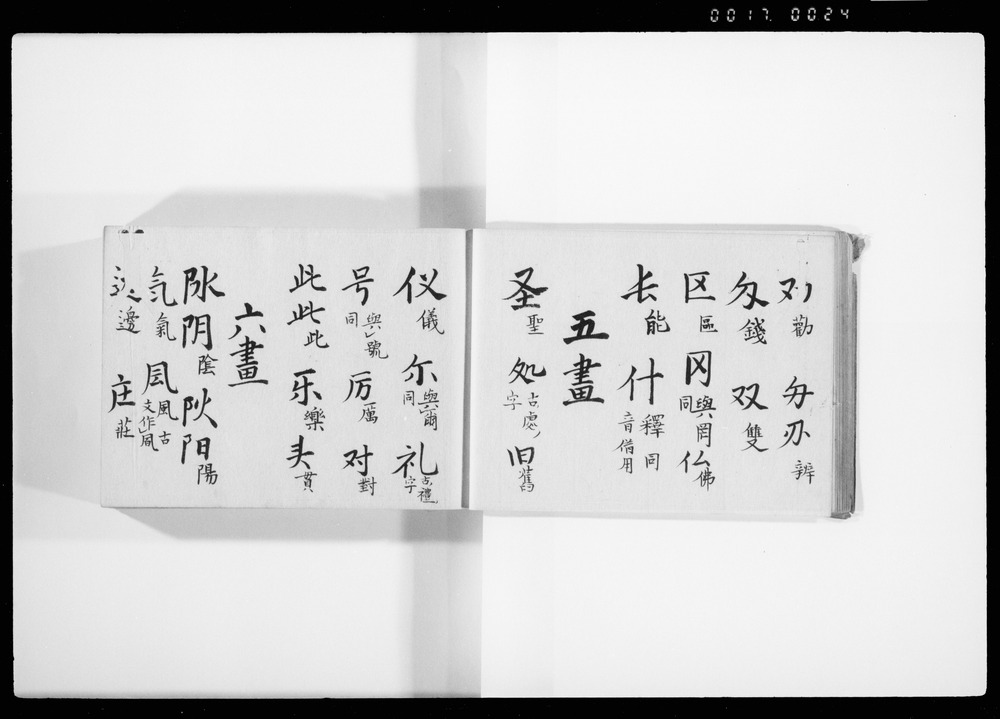 0017. 0024
勸 刅 辨
匁 錢 双 雙
区 區 冈 與罔同 仏 佛
能 什 釋同音借用
五畫
圣 聖 処 古處字 旧 舊
仪 儀 尔 與爾同 礼 古禮字
号 與號同 厉 厲 对 對
此 此 此 乐 樂 头 貫
六畫
阴 陰 阳 陽
気 氣 凨 風 古文作凮
邊 庄 莊